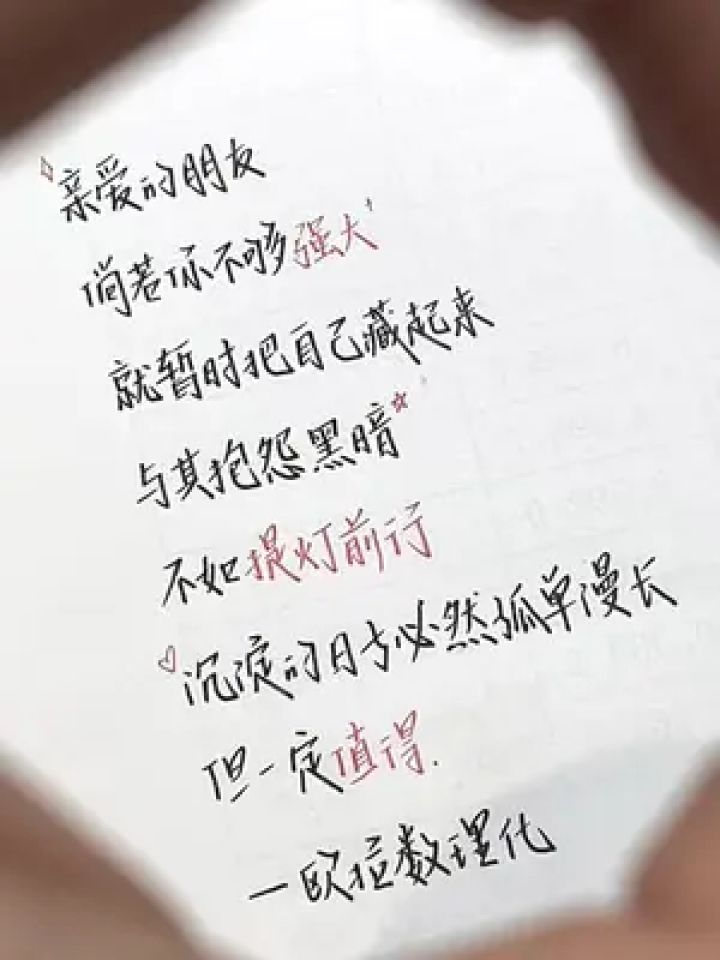 亲爱的朋友
倘若你不够强大
就暂时把自己藏起来
与其抱怨黑暗
不如提灯前行
沉淀的日子必然孤单漫长
但一定值得.
一欧拉数理化